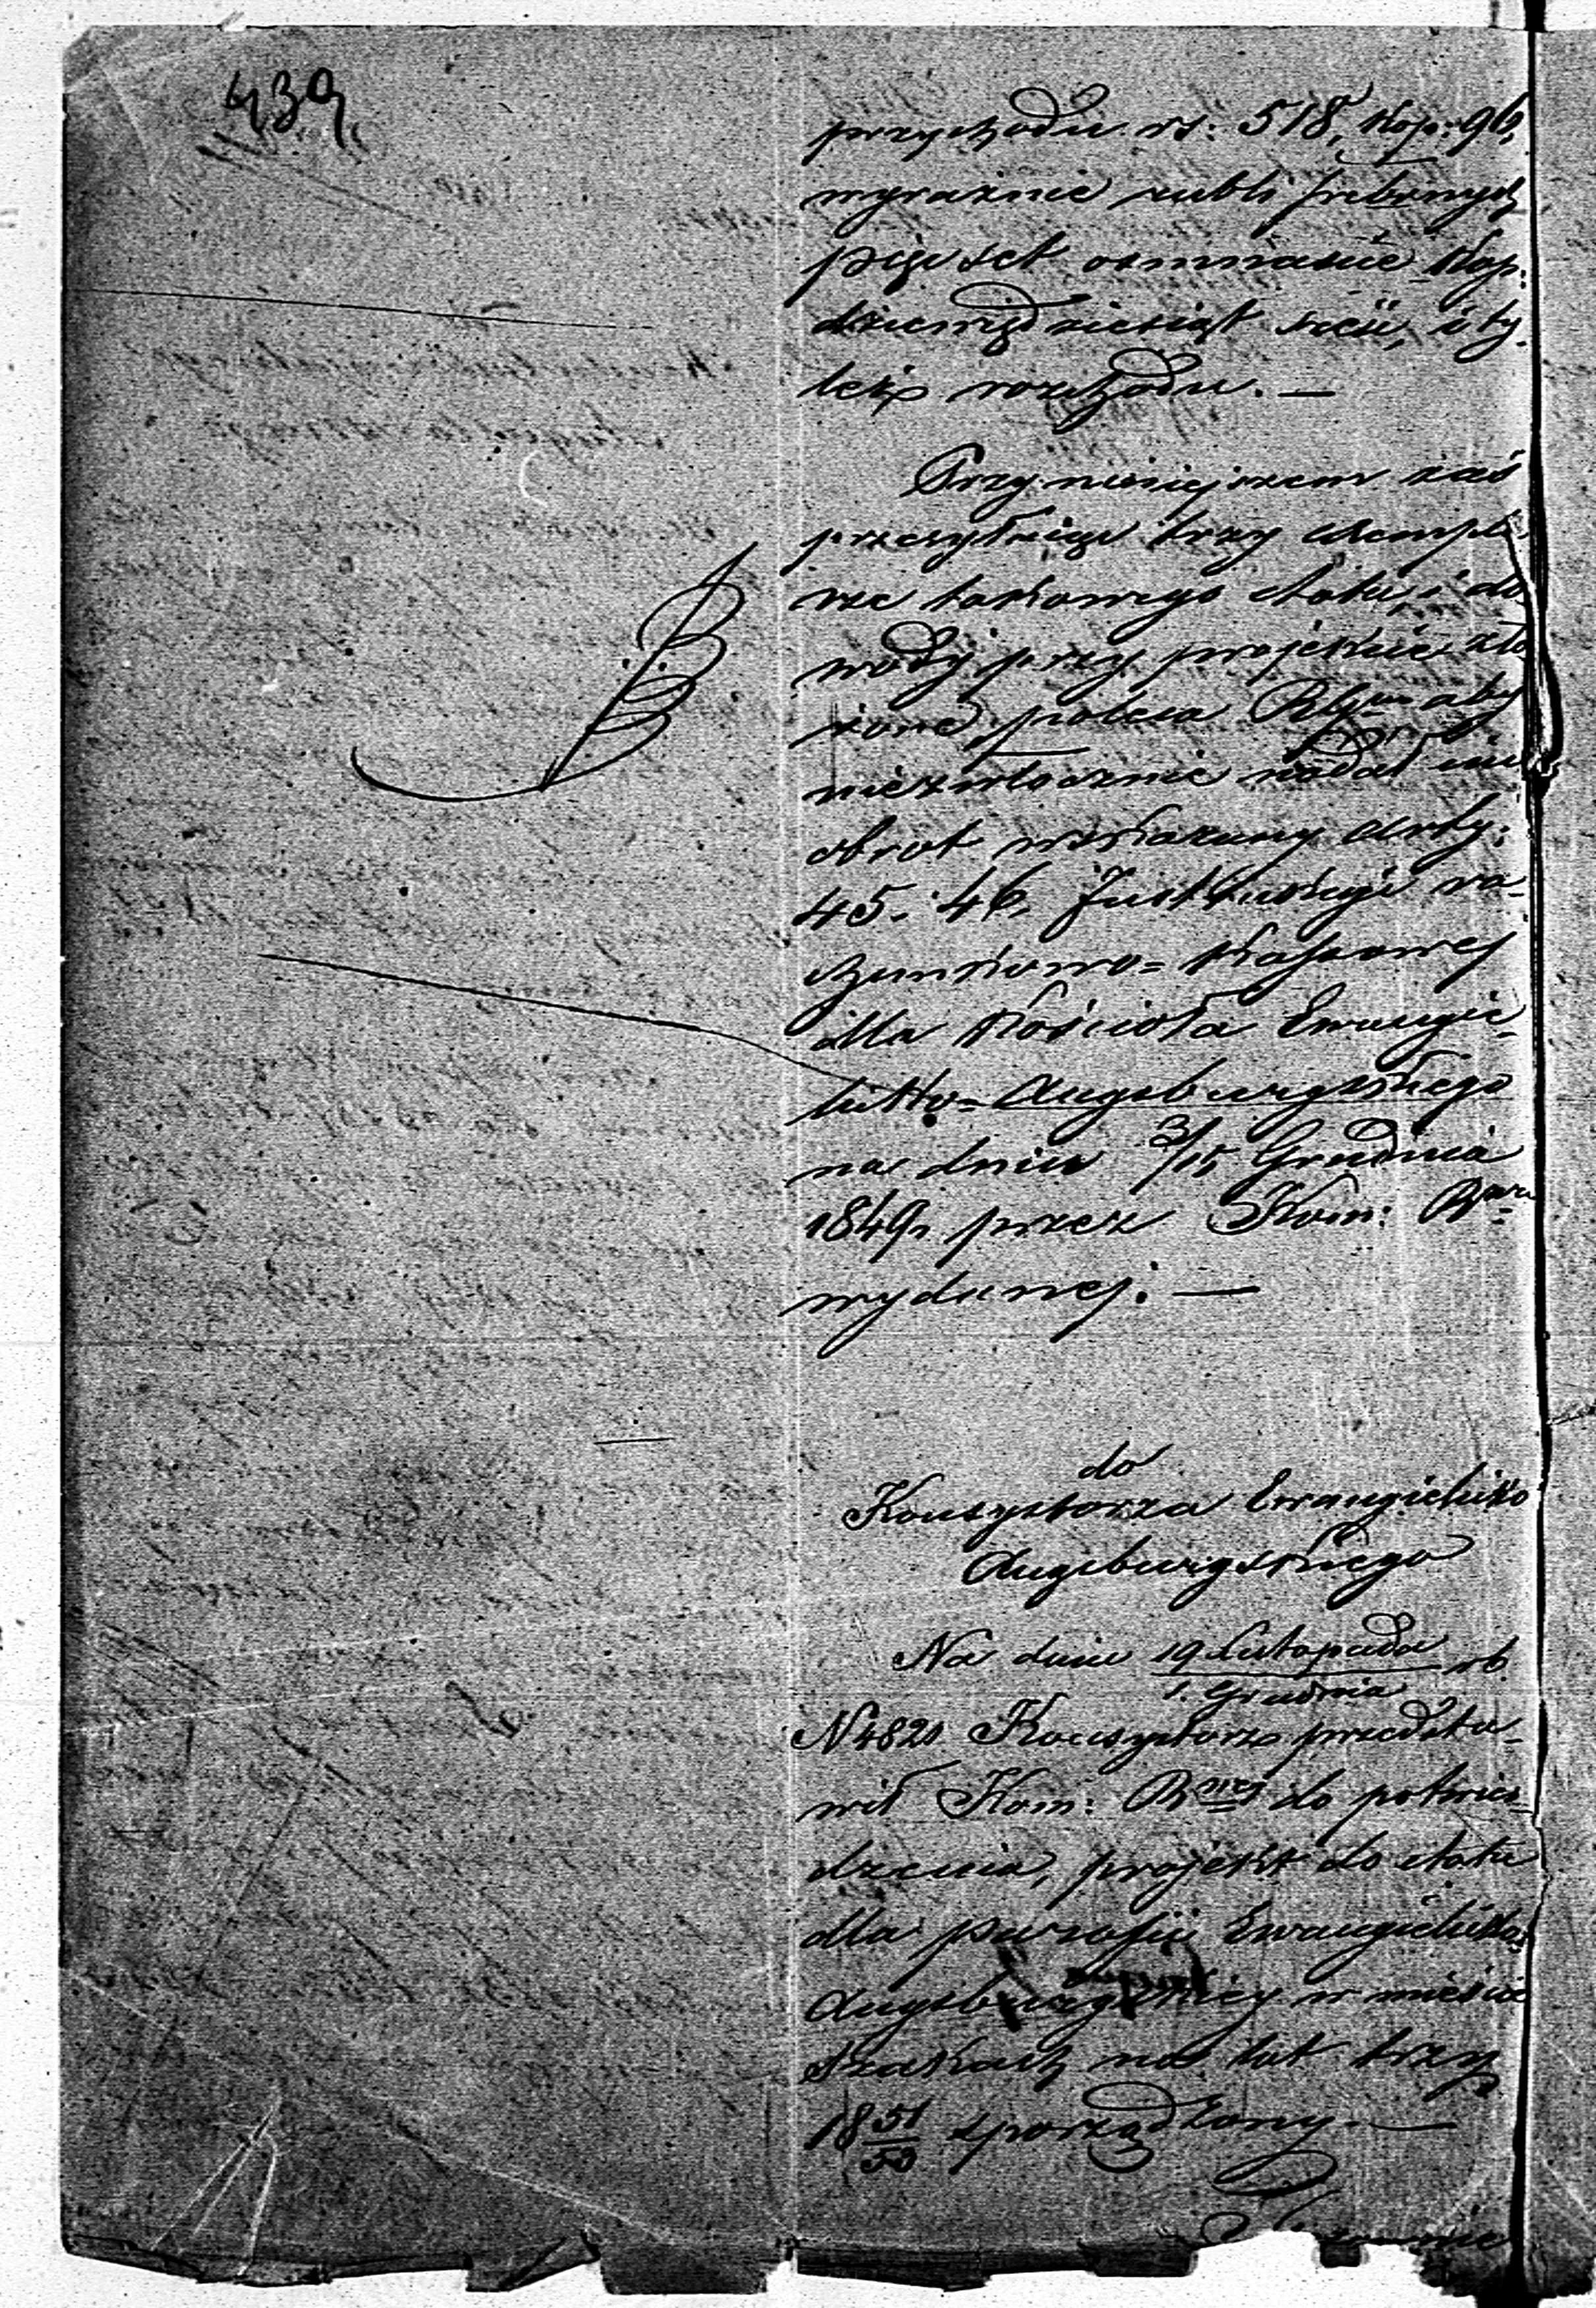 439.
przychodu rs: 518, kop: 96,
wyraźnie rubli srebrnych
pięćset osmnaście kop:
dziewięćdziesiąt sześć, i ty-
leż rozchodu. —
Przy niniejszem zaś
przesyłając trzy exempla-
rze takowego etatu, i do-
wody przy projekcie zło-
żone, poleca aby
niezwłocznie nadał im
obrot wskazany arty:
45. 46. Instrukcyi ra-
chunkowo=Kassowej
dla Kościoła Ewangie-
licko=Augsburgskiego
na dniu 3/15 Grudnia
1849 r. przez Kom: Rząd
wydanej. —
do
Konsystorza Ewangielicko
Augsburgskiego
Na dniu 19 Listopada / 1. Grudnia rb.
N 4821 Konsystorz przedsta-
wił Kom: Rząd do potwier-
dzenia, projekt do etatu
dla parafii Ewangielicko
Augsburgskiej w mieście
Szakach na lat trzy
18 51/53 sporządzony. —